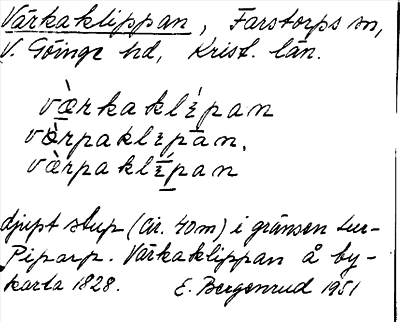 Värkaklippan, Farstorps sn,
V. Göinge hd, Krist. län.
væ̀rkaklɪ́pan
væ̀rpaklɪpan.
væ̀rpaklɪ́pan
djupt stup (cir. 40m) i gränsen Lur-
Piparp. Värkaklippan å by-
karta 1828. E. Bergenrud 1951